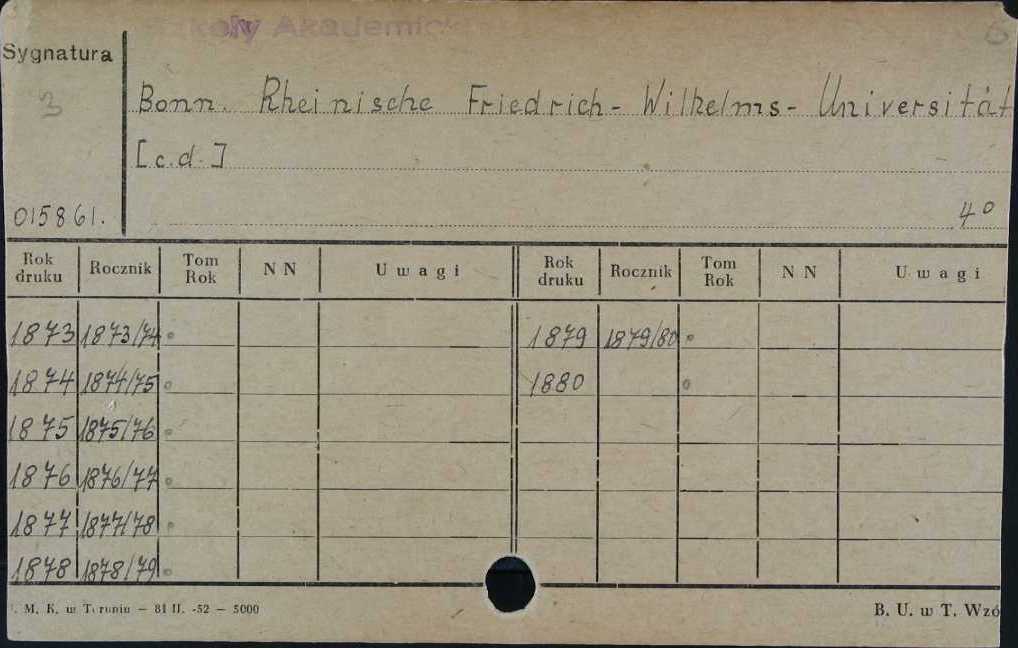 Szkoły Akademickie
6
Sygnatura
3
Bonn. Rheinische Friedrich- Wilhelms- Universität
[c.d.]
015861.
4°
Rok druku Rocznik Tom Rok N N Uwagi Rok druku Rocznik Tom Rok N N Uwagi
1873 1873/74 ° 1879 1879/80 °
1874 1874/75 ° 1880 °
1875 1875/76 °
1876 1876/77 °
1877 1877/78 °
1878 1878/79 °
. M. K. w Toruniu — 81 II. -52 — 5000
B. U. w T. Wzó